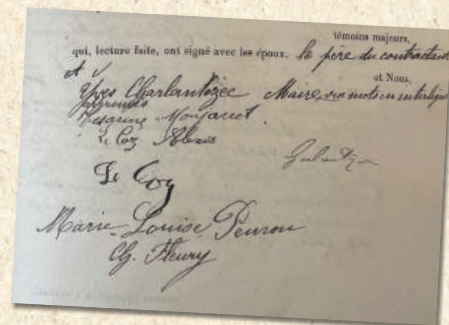 témoins majeurs,
qui, lecture faite, ont signé avec les époux. le père du contractant
et et Nous,
Yves Charlantizec Maire, six mots en interligne
Le Coz Alexis
Le Coz
Marie-Louise Penron
Ch. Fleury